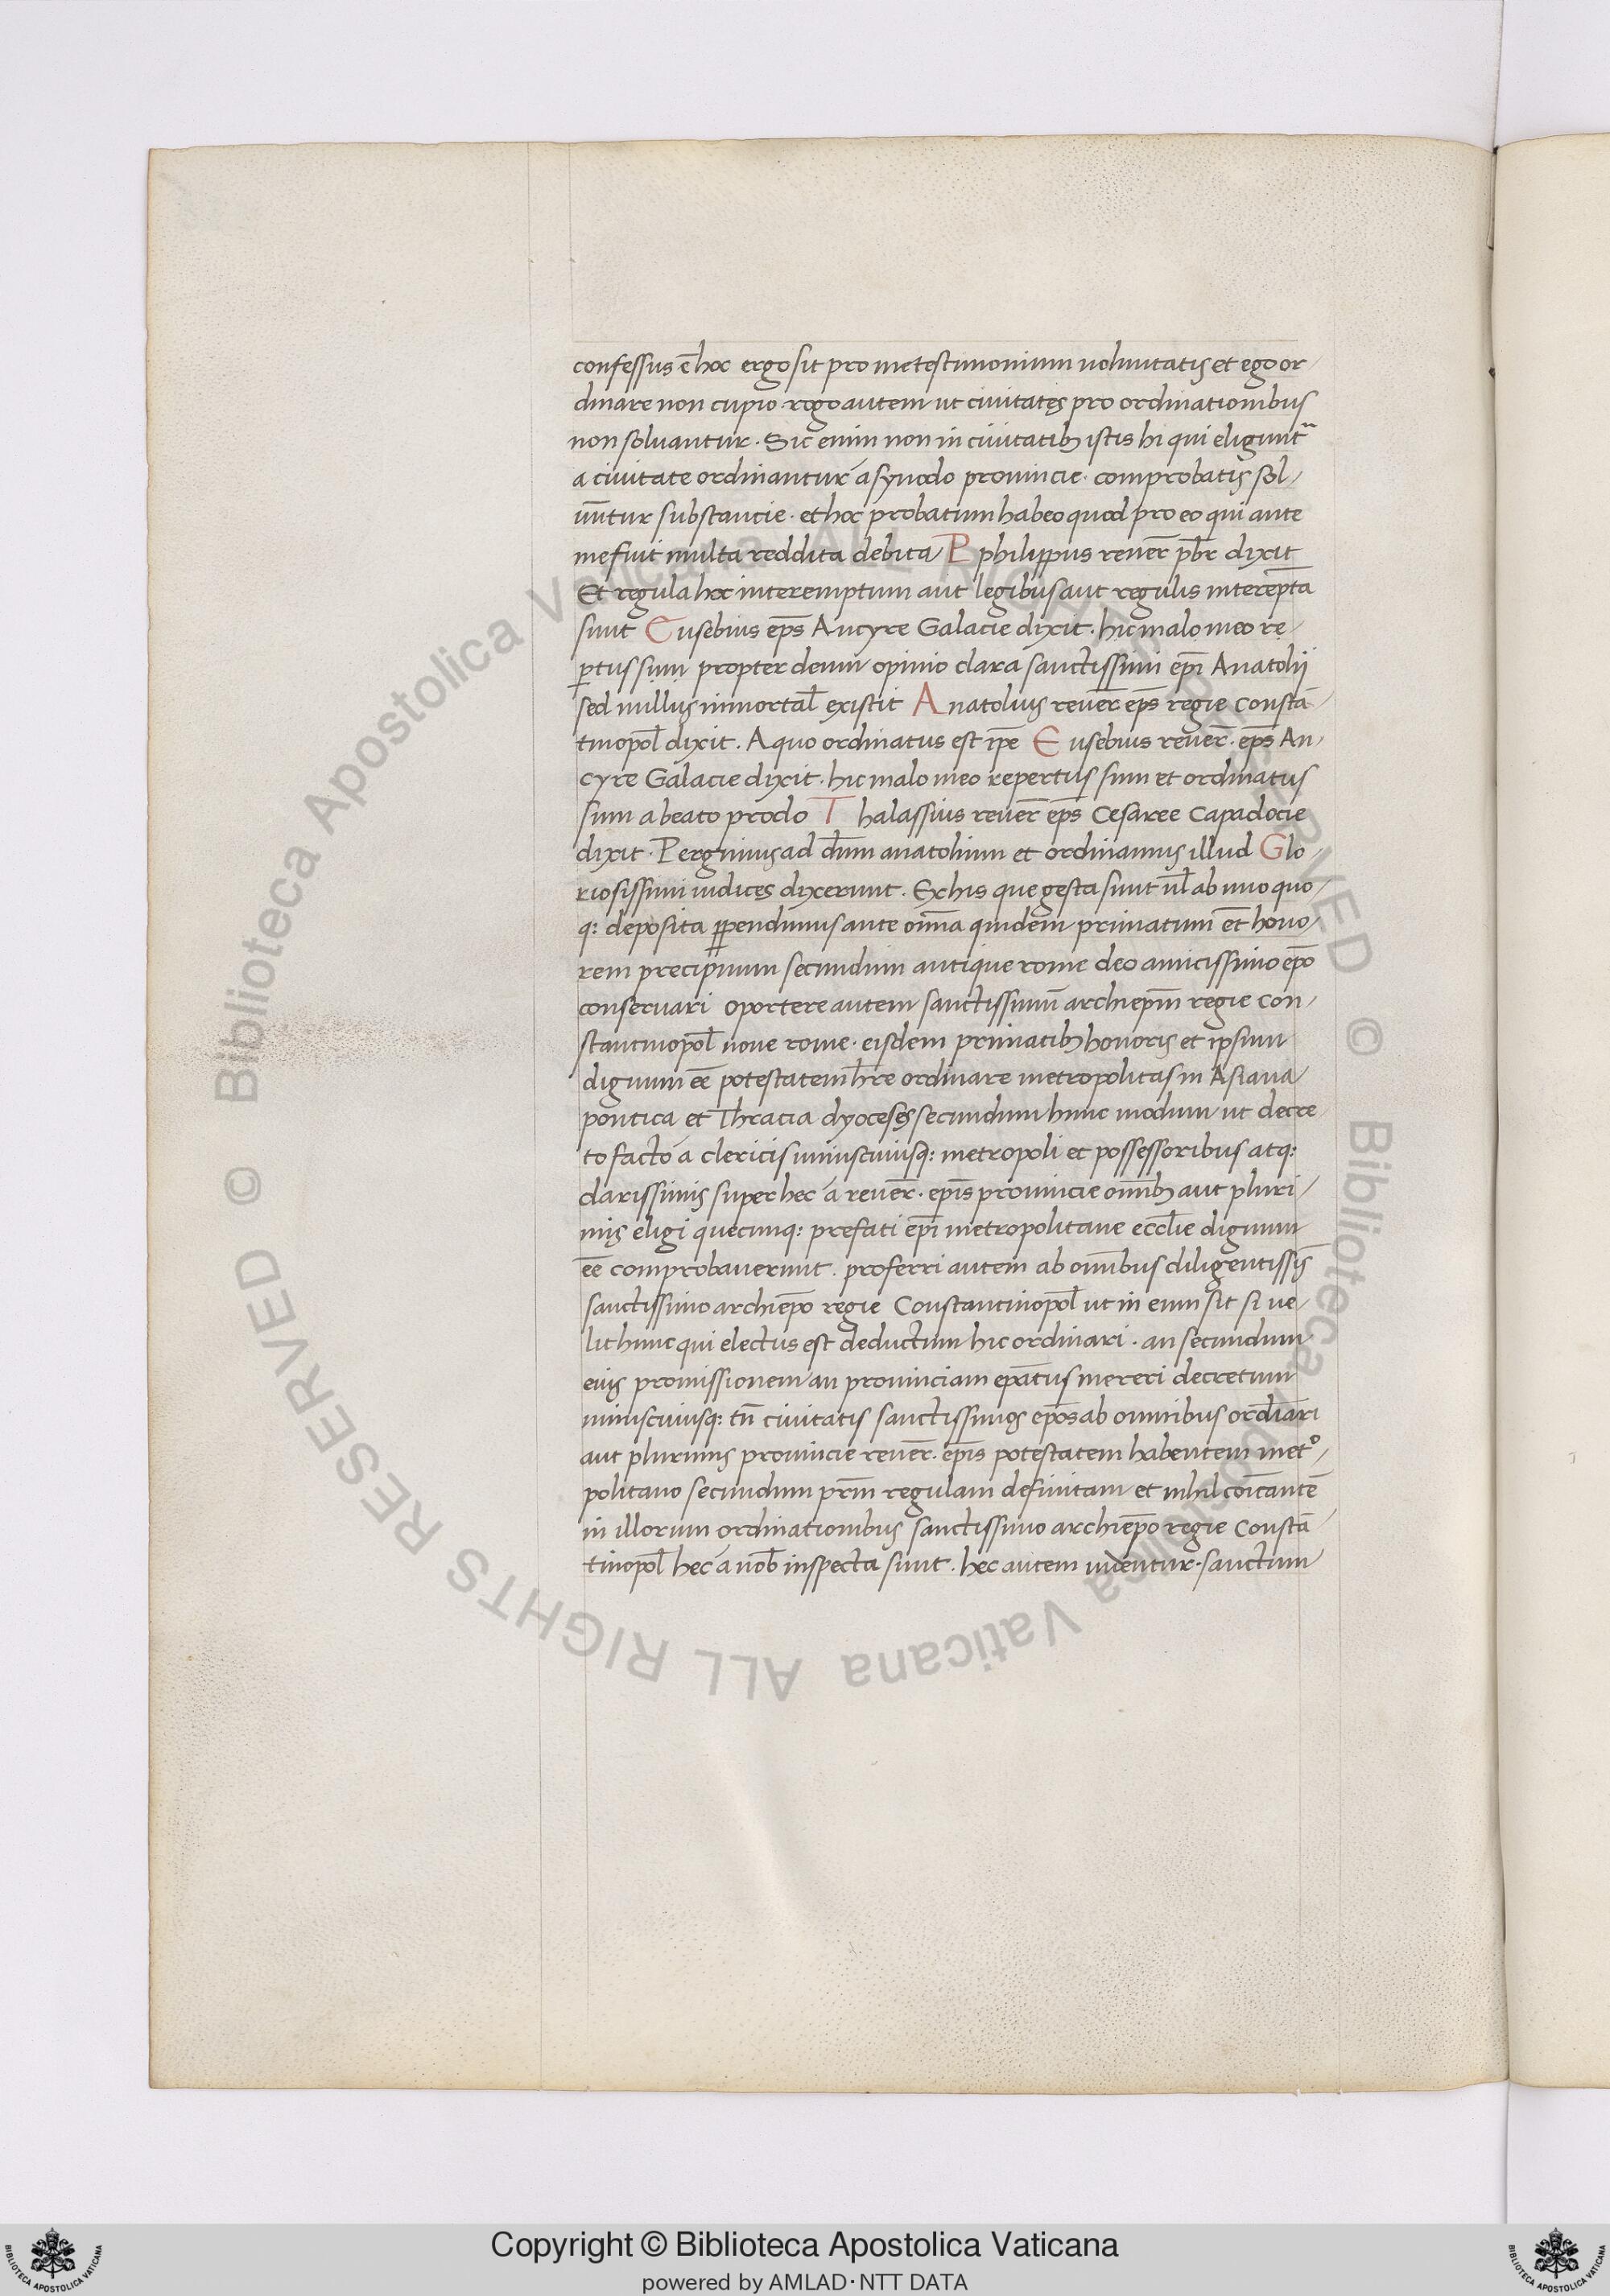 confessus ē hoc ergo sit pro me testimonium uoluntatis et ego or/
dinare non cupio rogo autem ut ciuitates pro ordinationibus
non soluantur. Sic enim non in ciuitatibꝫ istis hi qui eligunt᷑
a ciuitate ordinantur a synodo prouincie. comprobatis sol/
uūtur substantie. et hoc probatum habeo quod pro eo qui ante
me fuit multa reddita debita P philippus reuer̄ pbr̄ dixit
Et regula hoc interemptum aut legibus aut regulis interēpta
sunt Eusebius ep̄s Ancyre Galacie dixit. hic malo meo re/
ptus sum propter deum opinio clara sanctissimi ep̄i Anatolii
sed nullus inmortal̄ existit Anatolius reuer̄ ep̄s regie Constā/
tinopol̄ dixit. A quo ordinatus est ip̄e Eusebius reuer̄. ep̄s An/
cyre Galacie dixit. hic malo meo repertus sum et ordinatus
sum a beato proclo Thalassius reuer̄ ep̄s Cesaree Capadocie
dixit. Pergimus ad d̄num anatolium et ordinamus illud Glo/
riosissimi iudices dixerunt. Ex his que gesta sunt ul̄ ab uno quo/
q: deposita ꝑpendimus ante om̄a quidem primatum et hono/
rem precipuum secundum antique rome deo amicissimo ep̄o
conseruari oportere autem sanctissimū archiep̄m regie Con/
stantinopol̄ noue rome. eisdem primatibꝫ honoris et ipsum
dignum ēe potestatem h̄re ordinare metropolitas in Asiana
pontica et Thracia dyoceses secundum hunc modum ut decre
to facto a clericis uniuscuiusq: metropoli et possessoribus atq:
clarissimis super hec a reuer̄. ep̄is prouincie om̄ibꝫ aut pluri/
mis eligi quecunq: prefati ep̄i metropolitane eccl̄ie dignum
ēe comprobauerunt. proferri autem ab om̄ibus diligentissis̄
sanctissimo archiep̄o regie Constantinopol̄ ut in eum sit si ue/
lit hunc qui electus est deductum hic ordinari. an secundum
eius promissionem an prouinciam ep̄atus mereri decretum
uniuscuiusq: tn̄ ciuitatis sanctissimos ep̄os ab omnibus ordīari
aut plurimis prouincie reuer̄. ep̄is potestatem habentem metº/
politano secundum pr̄m regulam definitam et nihil coīcantē
in illorum ordinationibus sanctissimo archiep̄o regie Constā/
tinopol̄ hec a nob̄ inspecta sunt. hec autem uidentur. sanctum
Copyright © Biblioteca Apostolica Vaticana
powered by AMLAD·NTT DATA